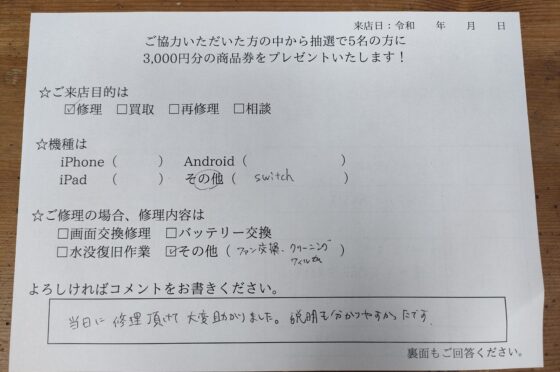 来店日：令和　　年　　月　　日
ご協力いただいた方の中から抽選で5名の方に
3,000円分の商品券をプレゼントいたします！
☆ご来店目的は
☑修理 □買取 □再修理 □相談
☆機種は
iPhone（　　　） Android（　　　　　　）
iPad　（　　　） その他（ switch　　　　）
☆ご修理の場合、修理内容は
□画面交換修理 □バッテリー交換
□水没復旧作業 ☑その他（ファン交換、クリーニング
よろしければコメントをお書きください。
当日に 修理頂けて 大変助かりました。説明も分かりやすかったです。
裏面もご回答ください。